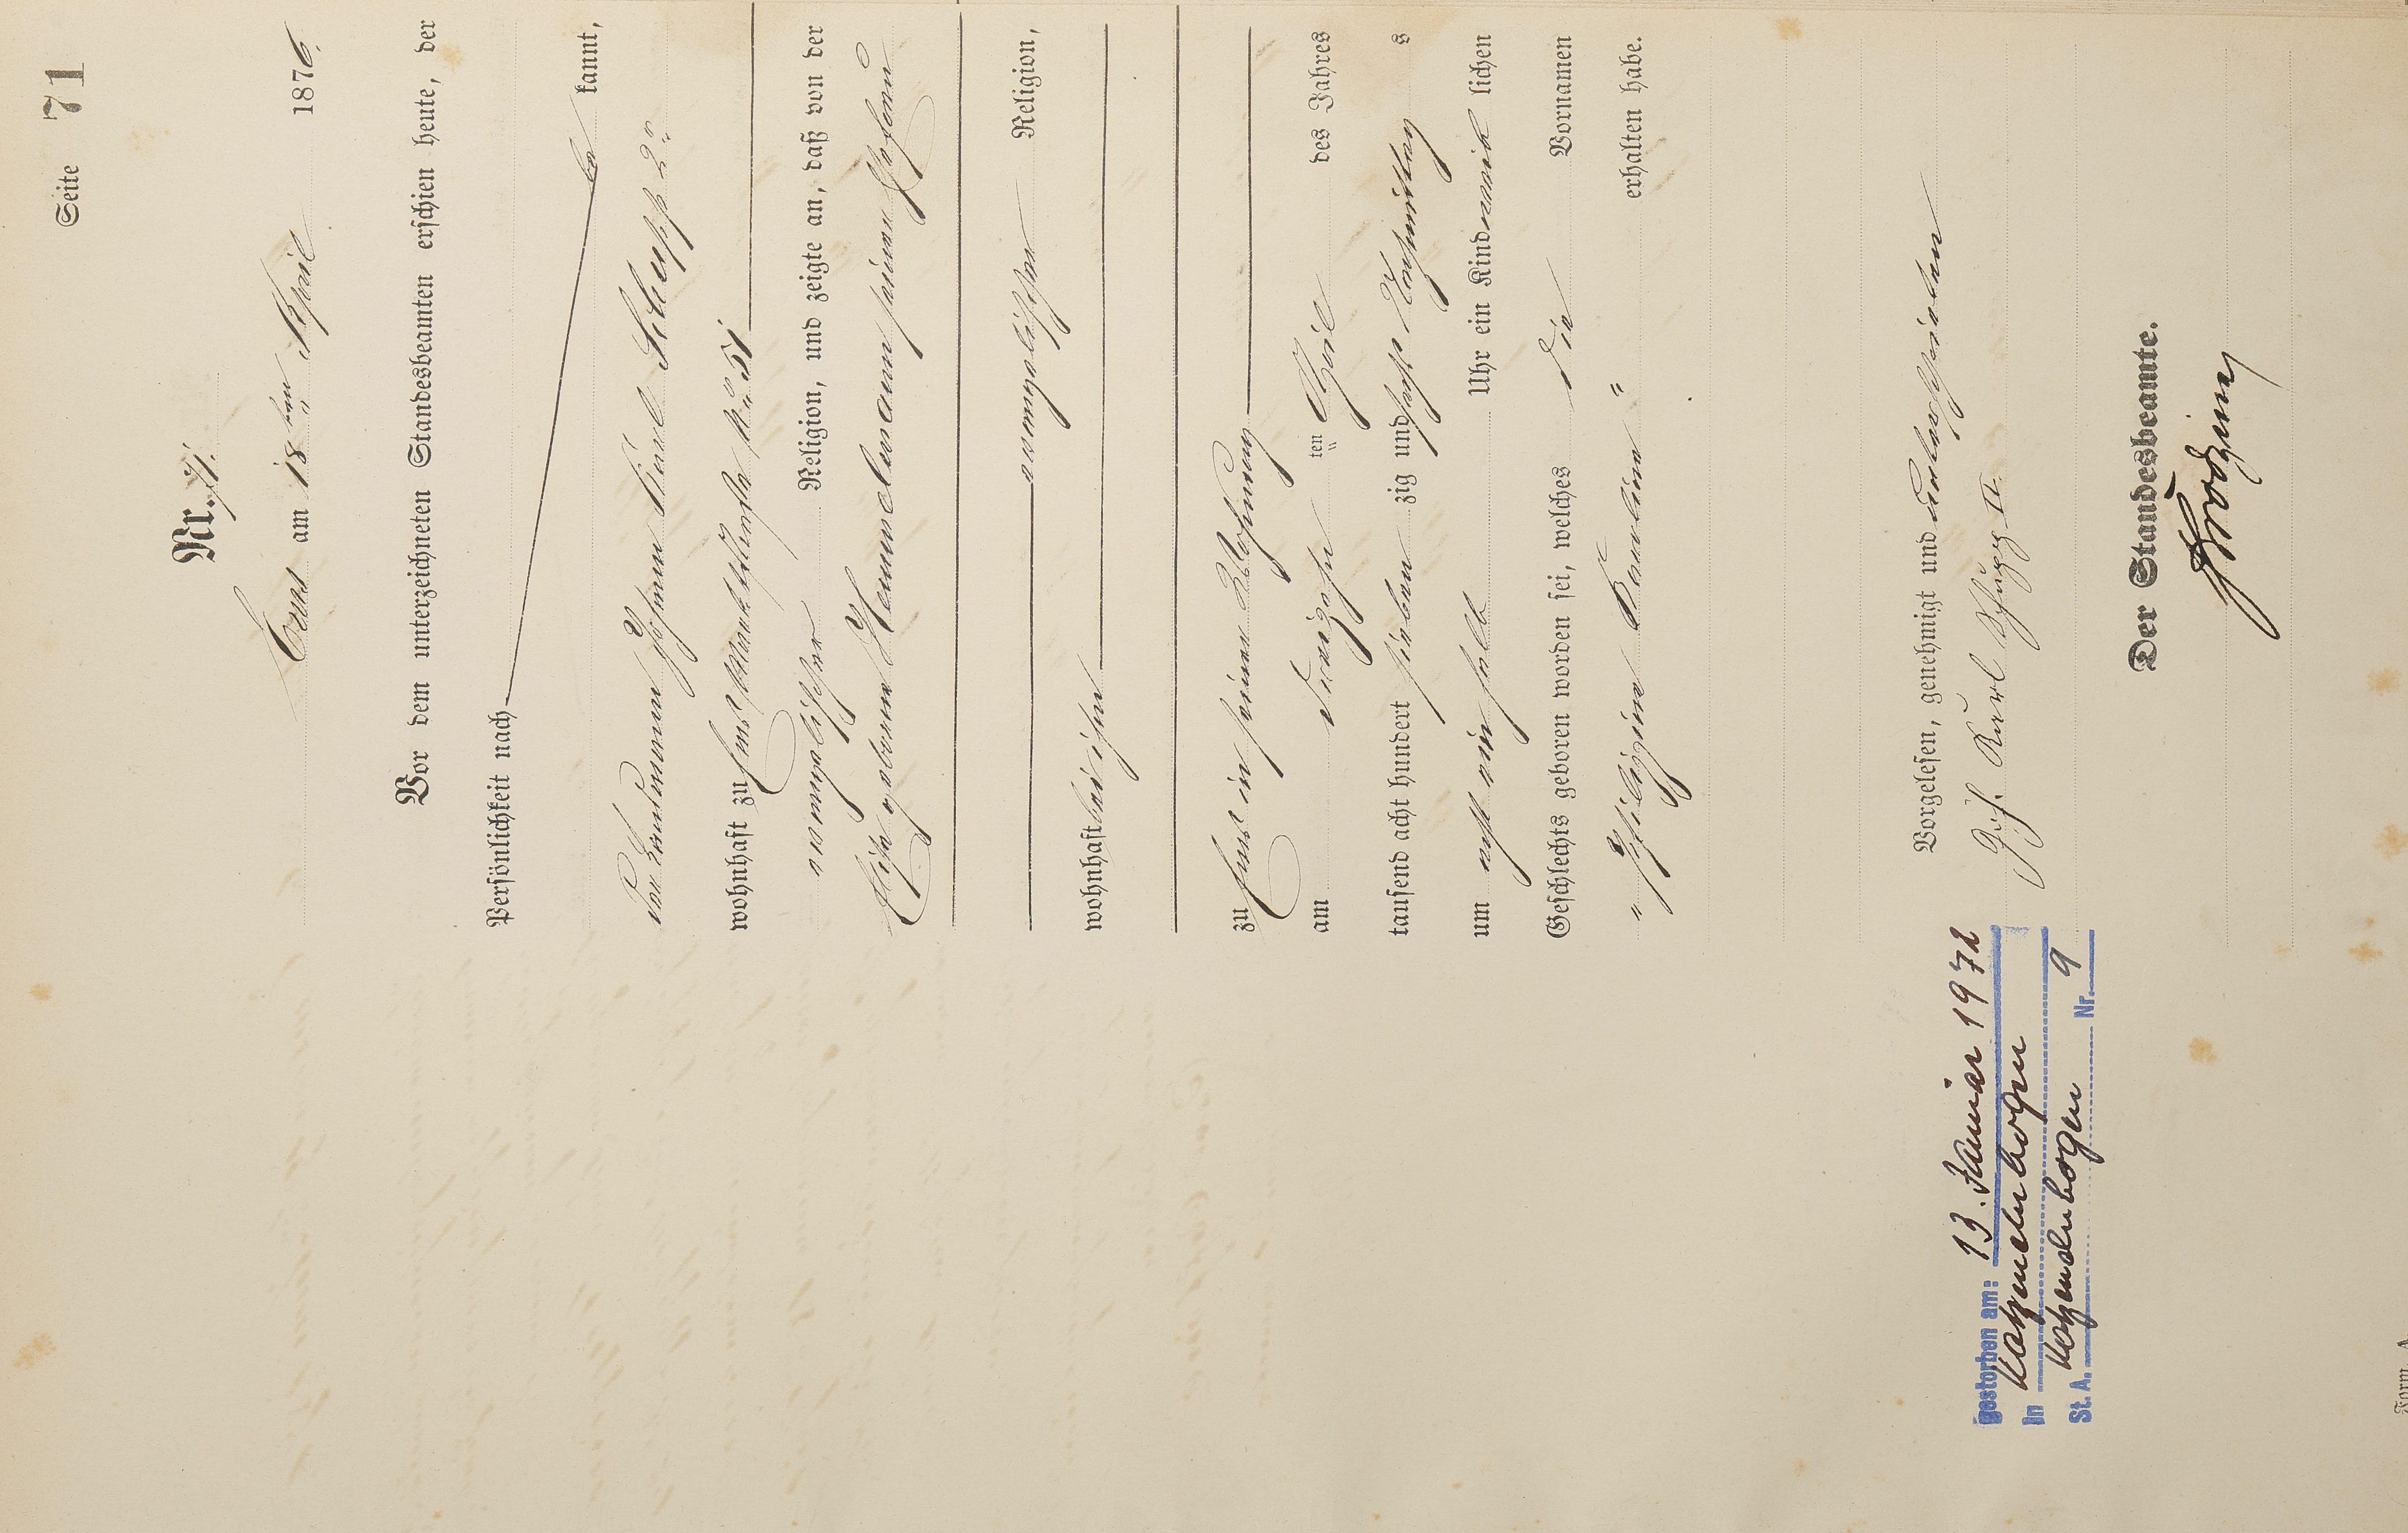 Seite 71
Nr. 71.
Ems am 18ten April 1876.
Vor dem unterzeichneten Standesbeamten erschien heute, der
Persönlichkeit nach
be kannt,
der Johann Karl Schupp 2r
wohnhaft zu Ems Marktstraße No 51
evangelischer Religion, und zeigte an, daß von der
geborene Hammelmann seiner Ehefrau
evangelischer Religion,
wohnhaft bei ihm
zu Ems in seiner Wohnung
am dreizehn ten April des Jahres
tausend acht hundert sieben zig und sechs Nachmittag s
um acht ein halb Uhr ein Kind weib lichen
Geschlechts geboren worden sei, welches die Vornamen
„ Karoline " erhalten habe.
Vorgelesen, genehmigt und unterschrieben
Joh. Karl Schupp II.
Der Standesbeamte.
gestorben am: 13. Januar 1972
in Katzenelnbogen
St. A. Katzenelnbogen Nr. 9
Form. A